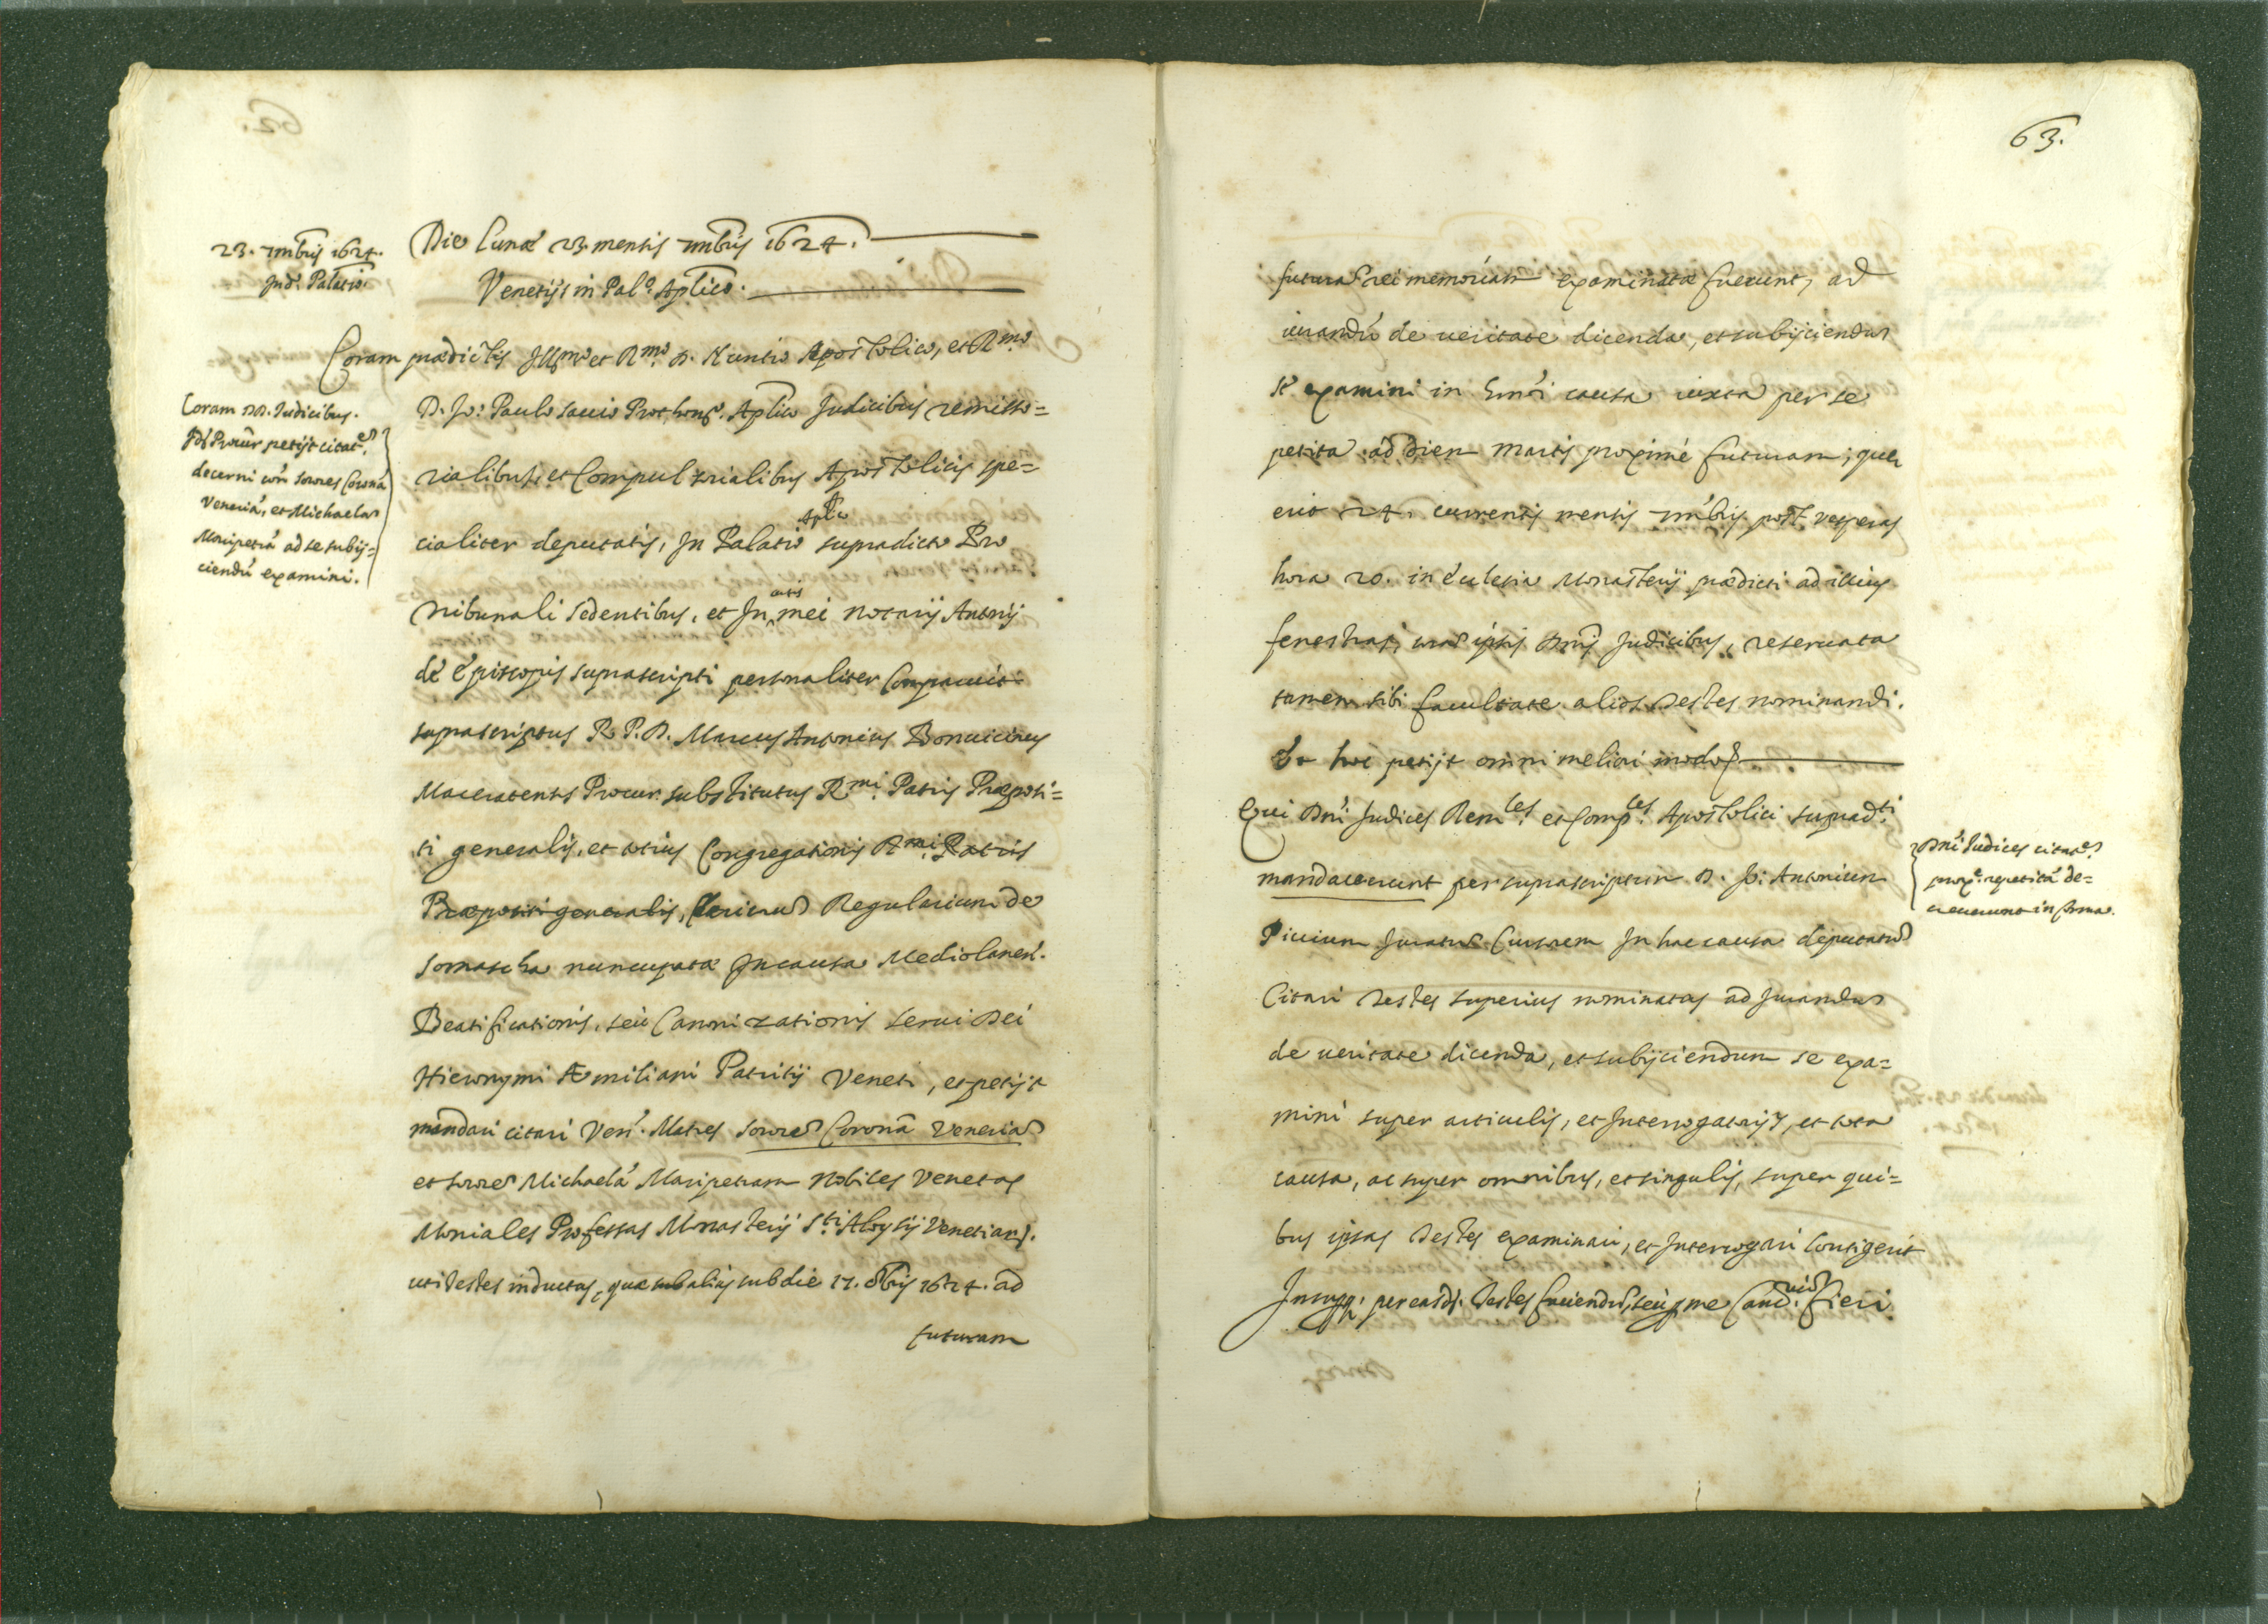 23. 7mbris 1624.
Ind. Palatio.
Die Lunæ 23 mensis 7mbris 1624.
Venetijs in Pal.o Aplico.
Coram prædictis Illmo et Rmo. D. Nuntio Apostolico, et Rmo.
D. Jo: Paulo Sauio Prothonot. Aplico Judicibus remisso=
rialibus, et Compulsorialibus Apostolicis spe=
cialiter deputatis, In Palatio Aplico supradicto Pro
Tribunali sedentibus, et In actis mei Notarij Antonij
de Episcopis suprascripti personaliter Comparuit
suprascriptus R. P. D. Marcus Antonius Bonuicinus
Maceratensis Procur. substitutus Rmi. Patris Præposi=
ti generalis, et totius Congregationis Rmi. Patris
Præpositi generalis, Clericorum Regularium de
Somascha nuncupatæ In causa Mediolanen.
Beatificationis, seu Canonizationis serui Dei
Hieronymi Æmiliani Patritij Veneti, et petijt
mandari citari Ven. Matres Sorores Corona Veneria
et Sorore Michaela Maripetram Nobiles Venetas
Moniales Professas Monasterij S.ti Aloysij Venetiarum.
uti testes inductas, quæ sub alias sub die 17. 8bris 1624. ad
futuram
Coram DD. Iudicibus.
Ds Procur petijt citat.
decerni con Sorores Corona
Veneria, et Michaela
Maripetra ad se subij=
ciendu examini.
63.
futura rei memoriam examinatæ fuerunt, ad
iurandu de ueritate dicenda, et subijciendu
se examini in hmoi causa iuxta per se
petita ad diem martis proximè futuram; quæ
erit 24. currentis mensis 7mbris post vesperas
hora 20. in Ecclesia Monasterij prædicti ad illius
fenestras, cora ipsis Dnis Judicibus, reseruata
tamen sibi facultate alios testes nominandi.
Et hoc petijt omni meliori modo
Qui Dni Judices Rem.les et Comp.les Apostolici suprad.ti
mandauerunt per suprascriptum D. Jo: Antonium
Piccium Juratu Cursorem In hac causa deputatu
Citari testes superius nominatas ad Jurandu
de ueritate dicenda, et subijciendum se exa=
mini super articulis, et Interrogatorijs, et tota
causa, ac super omnibus, et singulis, super qui=
bus ipsas testes examinari, et Interrogari Contigerit
per easd. testes faciendu, seu me fieri
Dni Iudices citat.
prox. repetita de=
creuerunt in forma.